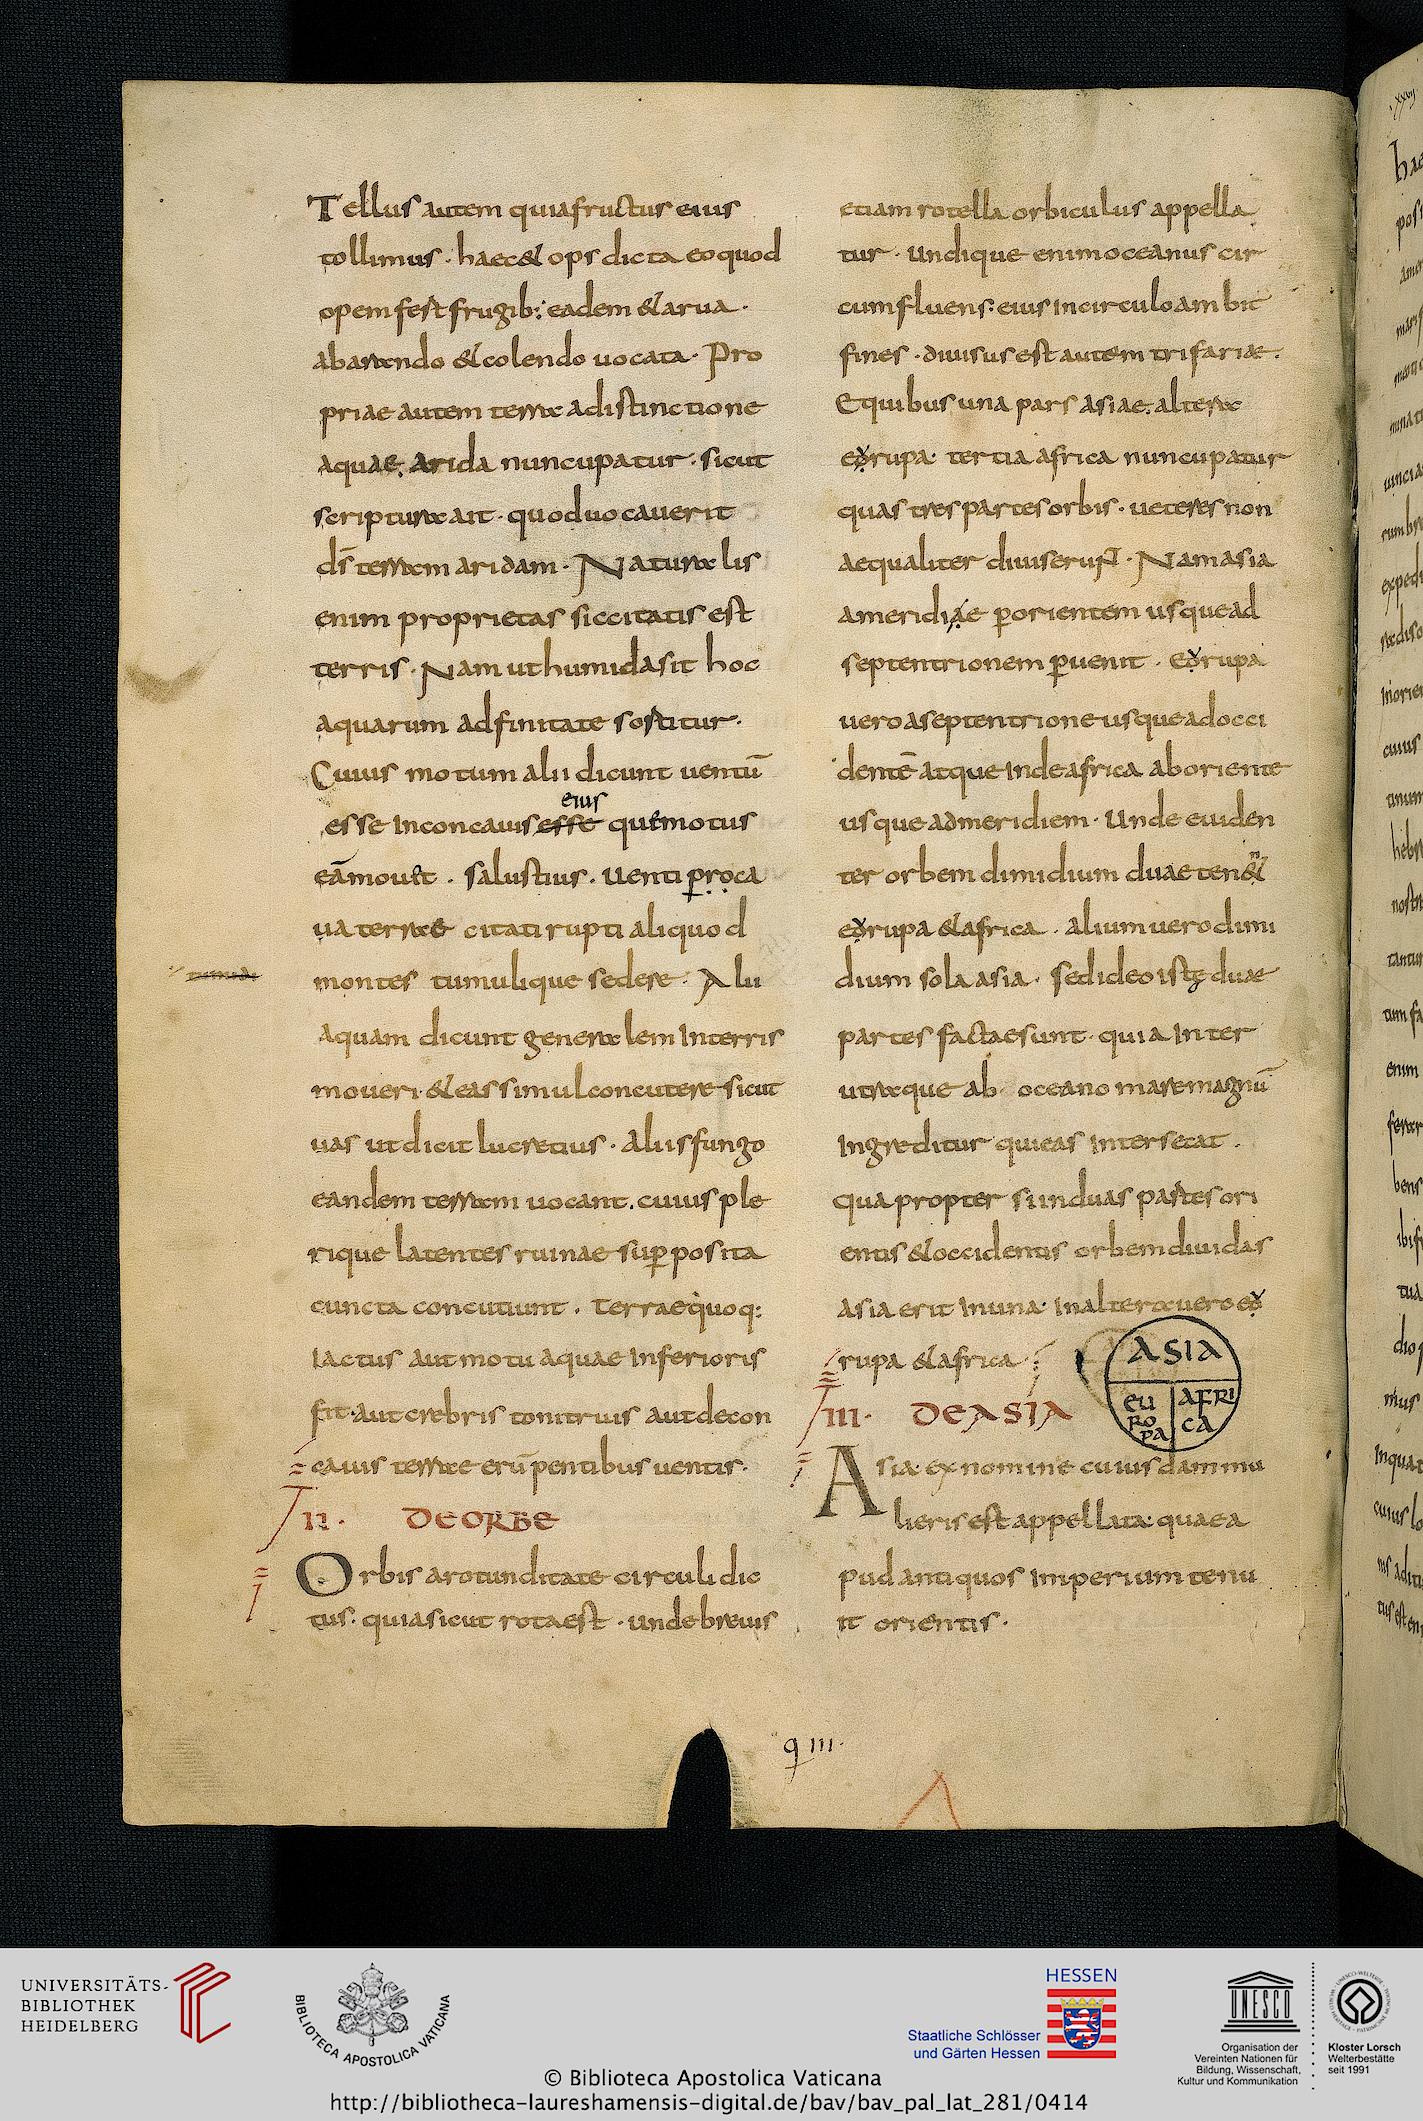 Tellus autem quia fructus eius
tollimus · haec & ops dicta eo quod
opem fert frugib: eadem & arua ·
ab arando & colendo uocata · Pro
priae autem terra ad istinctione
aquae · Arida nuncupatur · sicut
scriptura ait · quod uocauerit
ds̄ terram aridam · Naturalis
enim proprietas siccitatis est
terris · Nam ut humida sit hoc
aquarum adfinitate sortitur ·
Cuius motum alii dicunt uentū
eius
esse in concauis esse quēmotus
eā mouet · salustius · uenti proca
ua terrae citati rupti aliquod
montes tumulique sedere · Alii
aquam dicunt generalem in terris
moueri · & eas simul concutere sicut
uas ut dicit lucretius · alii sfungo
eandem terram uocant · cuius ple
rique latentes ruinae superposita
cuncta concutiunt · Terrae quoq:
iactus aut motu aquae inferioris
fit · aut crebris tonitruis aut decon
cauis terrae erūpentibus uentis ·
II · DE ORBE
Orbis a rotunditate circuli dic
tus · quia sicut rota est · unde breuis
etiam rotella orbiculus appella
tur · undique enim oceanus cir
cumfluens: eius in circulo ambit
fines · diuisus est autem trifariae ·
E quibus una pars asiae: altera
eoyrupa · tertia africa nuncupatur
quas tres partes orbis · ueteres non
aequaliter diuiserunt · Nam asia
a meridiae per orientem usque ad
septentrionem peruenit · Eoyrupa
uero a septentrione usque ad occi
dentē atque inde africa ab oriente
usque ad meridiem · Unde euiden
ter orbem dimidium duae ten&
eoyrupa & africa · alium uero dimi
dium sola asia · sed ideo istę duae
partes factae sunt · quia inter
utraque ab oceano mare magnū
ingreditur qui eas intersecat ·
quapropter si in duas partes ori
entis & occidentis orbem diuidas
asia erit in una · in altera uero eoy
rupa & africa
ASIA
EU
RO
PA
AFRI
CA
III · DE ASIA
Asia ex nomine cuiusdam mu
lieris est appellata: quae a
pud antiquos imperium tenu
it orientis ·
q III ·
UNIVERSITÄTS-
BIBLIOTHEK
HEIDELBERG
BIBLIOTECA APOSTOLICA VATICANA
HESSEN
Staatliche Schlösser
und Gärten Hessen
UNESCO
Organisation der
Vereinten Nationen für
Bildung, Wissenschaft,
Kultur und Kommunikation
Kloster Lorsch
Welterbestätte
seit 1991
© Biblioteca Apostolica Vaticana
http://bibliotheca-laureshamensis-digital.de/bav/bav_pal_lat_281/0414